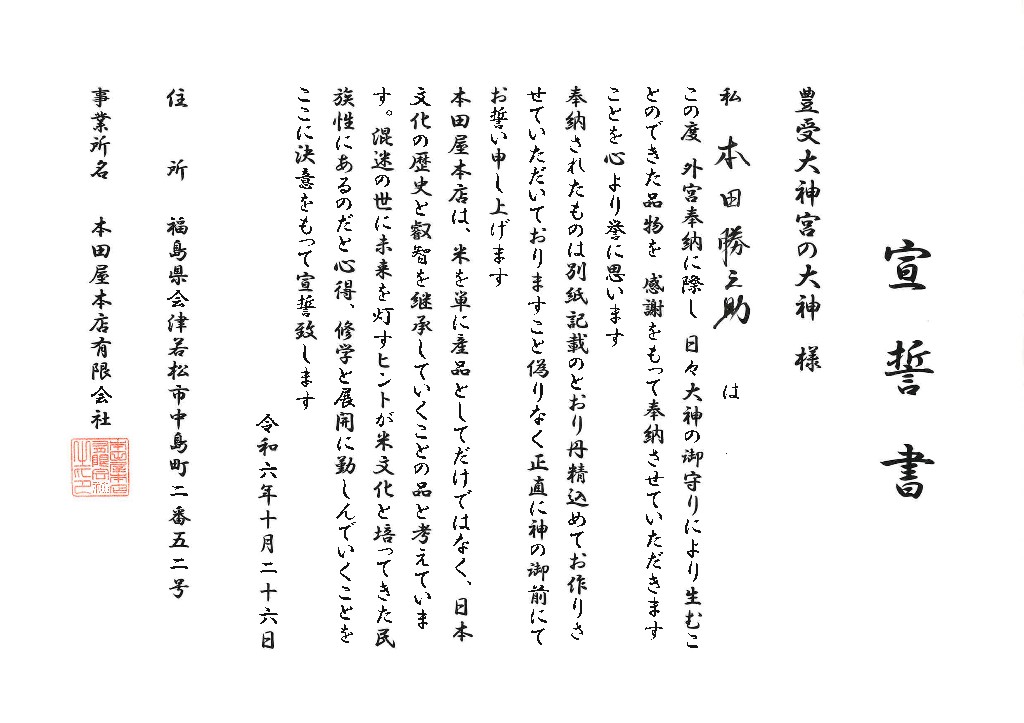 宣誓書
豊受大神宮の大神 様
私 本田勝之助 は
この度 外宮奉納に際し 日々大神の御守りにより生むこ
とのできた品物を 感謝をもって奉納させていただきます
ことを心より誉に思います
奉納されたものは別紙記載のとおり丹精込めてお作りさ
せていただいておりますこと偽りなく正直に神の御前にて
お誓い申し上げます
本田屋本店は、米を単に産品としてだけではなく、日本
文化の歴史と叡智を継承していくことの品と考えていま
す。混迷の世に未来を灯すヒントが米文化と培ってきた民
族性にあるのだと心得、修学と展開に勤しんでいくことを
ここに決意をもって宣誓致します
令和六年十月二十六日
住所 福島県会津若松市中島町二番五二号
事業所名 本田屋本店有限会社